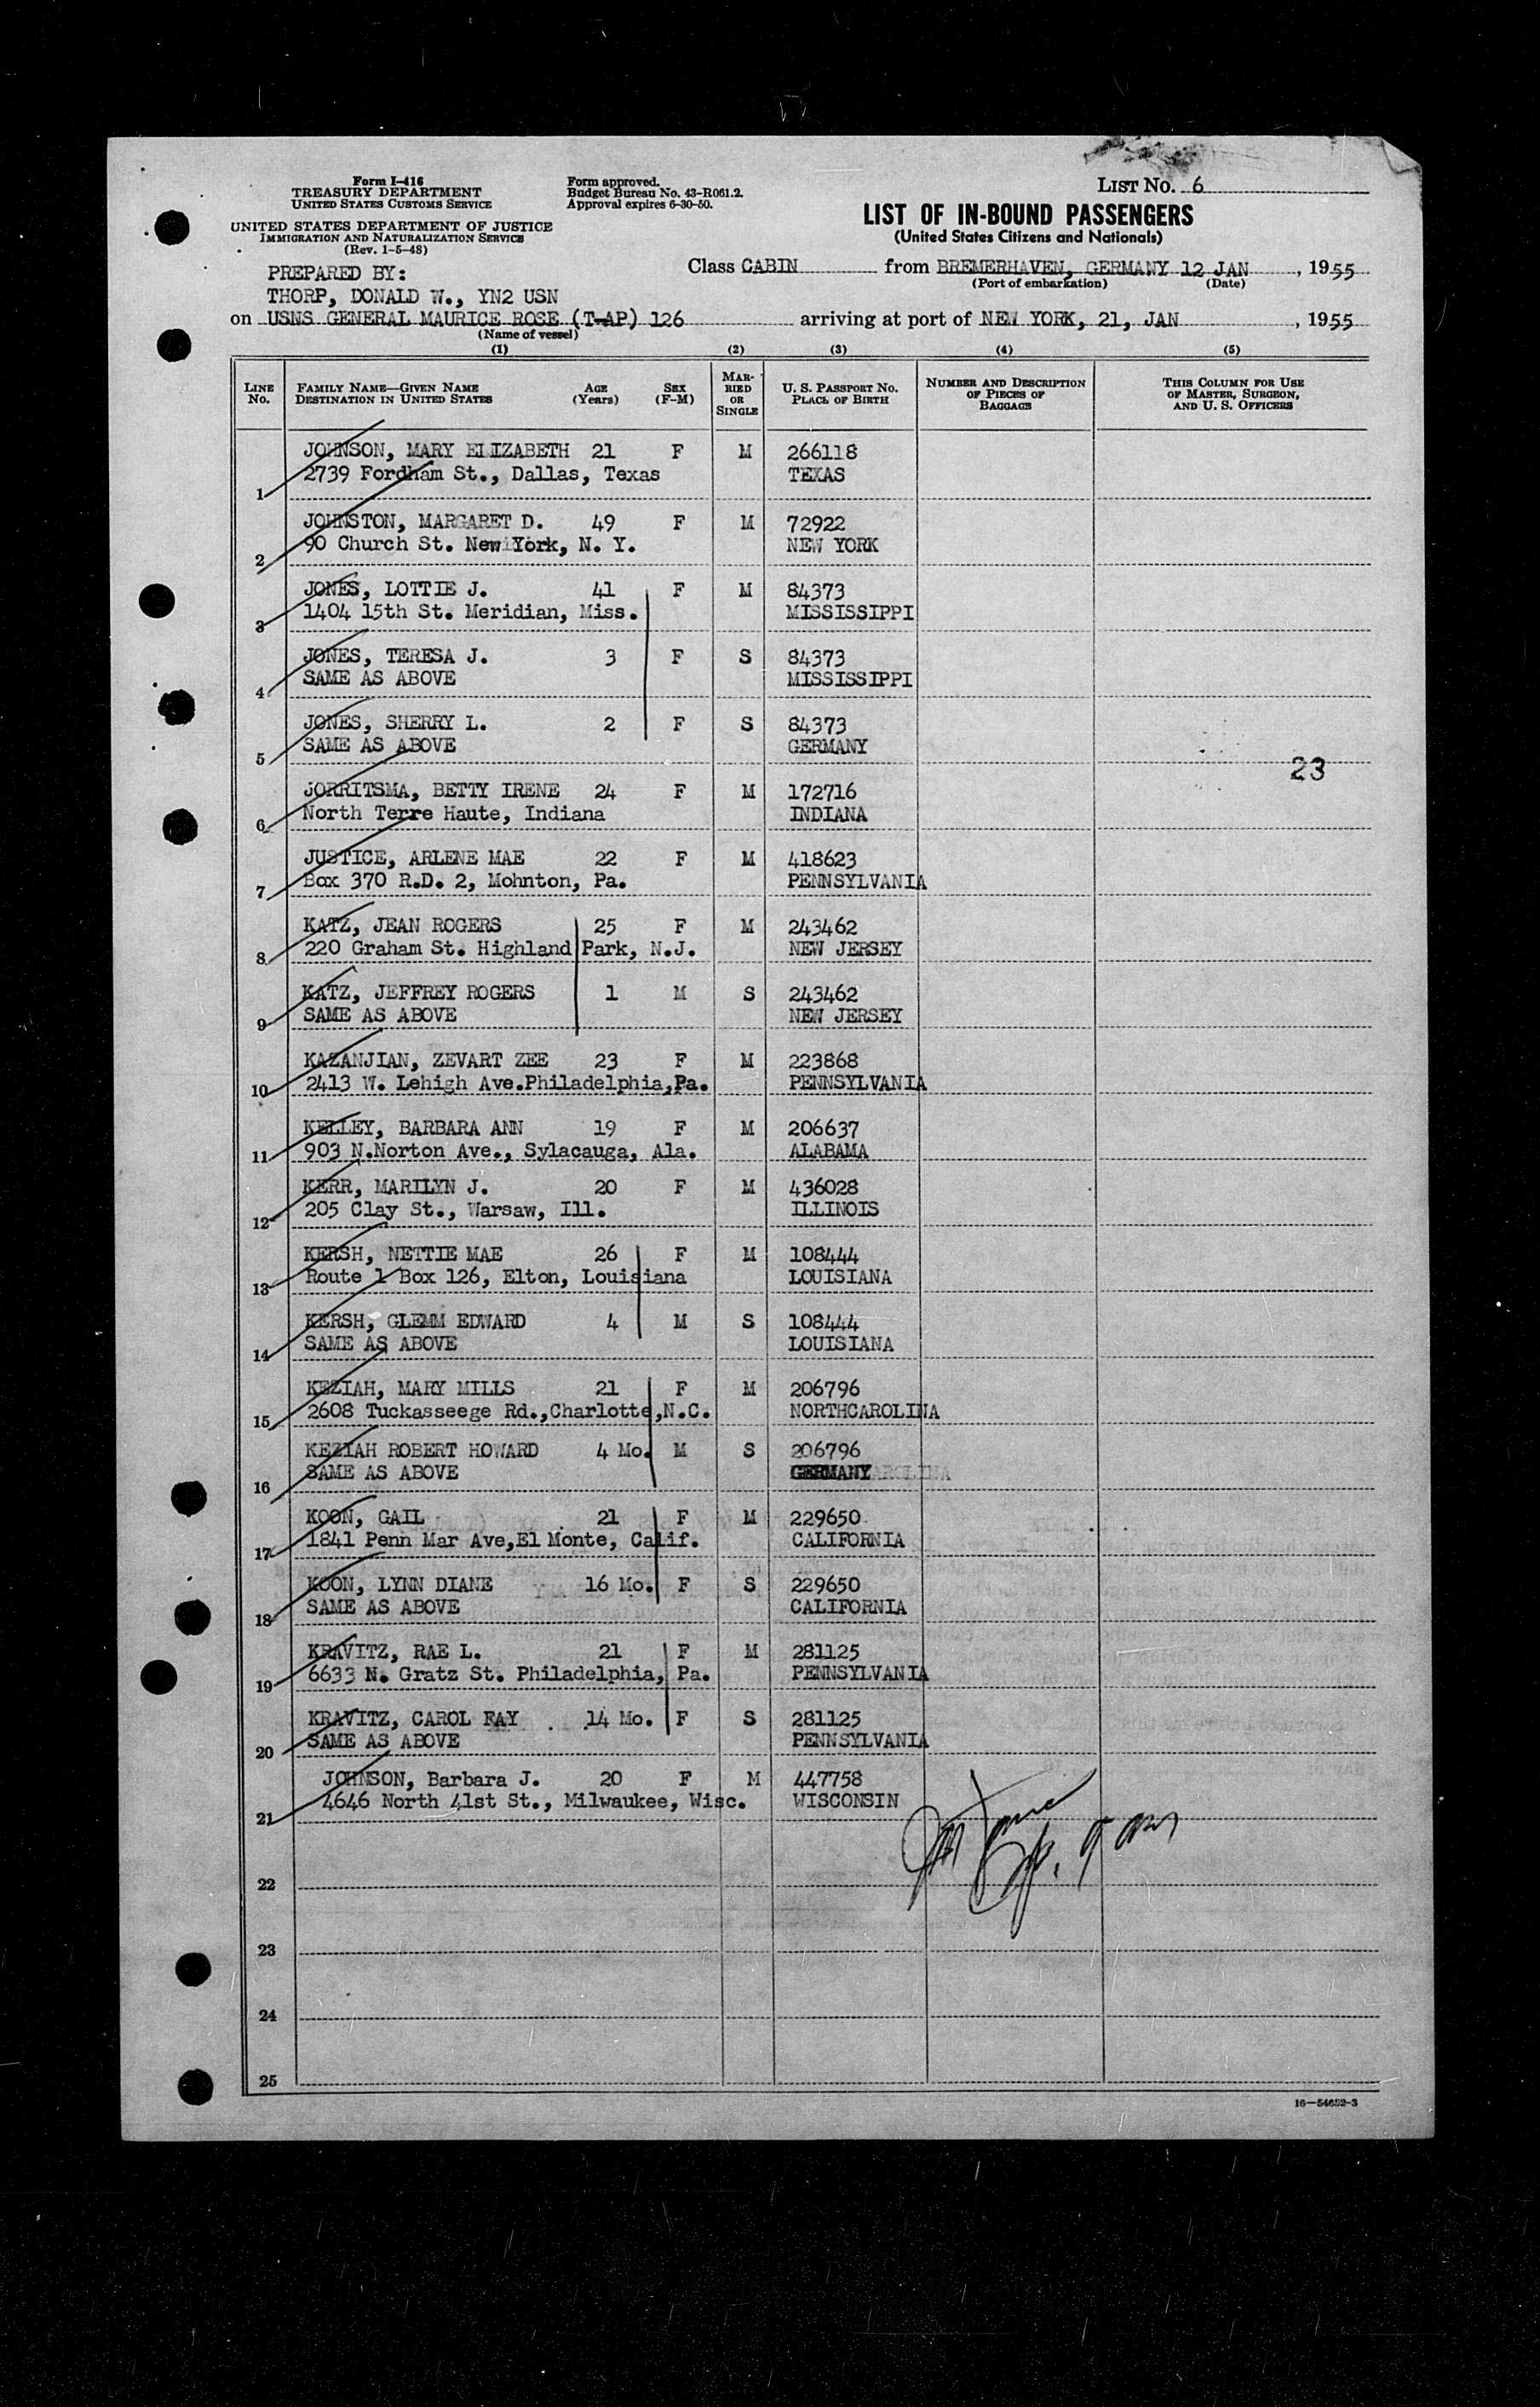 Form I-416
TREASURY DEPARTMENT
UNITED STATES CUSTOMS SERVICE
UNITED STATES DEPARTMENT OF JUSTICE
IMMIGRATION AND NATURALIZATION SERVICE
(Rev. 1-5-48)
Form approved.
Budget Bureau No. 43-R061.2.
Approval expires 6-30-50.
LIST No. 6
LIST OF IN-BOUND PASSENGERS
(United States Citizens and Nationals)
PREPARED BY:
THORP, DONALD W., YN2 USN
Class CABIN from BREMERHAVEN, GERMANY 12 JAN, 1955
(Port of embarkation) (Date)
on USNS GENERAL MAURICE ROSE (T-AP) 126 arriving at port of NEW YORK, 21, JAN, 1955
(Name of vessel)
(1) (2) (3) (4) (5)
LINE No. FAMILY NAME—GIVEN NAME DESTINATION IN UNITED STATES AGE (Years) SEX (F-M) MARRIED OR SINGLE U. S. PASSPORT NO. PLACE OF BIRTH NUMBER AND DESCRIPTION OF PIECES OF BAGGAGE THIS COLUMN FOR USE OF MASTER, SURGEON, AND U. S. OFFICERS
JOHNSON, MARY ELIZABETH 21 F M 266118
1 2739 Fordham St., Dallas, Texas TEXAS
JOHNSTON, MARGARET D. 49 F M 72922
2 90 Church St. New York, N. Y. NEW YORK
JONES, LOTTIE J. 41 F M 84373
3 1404 15th St. Meridian, Miss. MISSISSIPPI
JONES, TERESA J. 3 F S 84373
4 SAME AS ABOVE MISSISSIPPI
JONES, SHERRY L. 2 F S 84373
5 SAME AS ABOVE GERMANY
23
JORRITSMA, BETTY IRENE 24 F M 172716
6 North Terre Haute, Indiana INDIANA
JUSTICE, ARLENE MAE 22 F M 418623
7 Box 370 R.D. 2, Mohnton, Pa. PENNSYLVANIA
KATZ, JEAN ROGERS 25 F M 243462
8 220 Graham St. Highland Park, N.J. NEW JERSEY
KATZ, JEFFREY ROGERS 1 M S 243462
9 SAME AS ABOVE NEW JERSEY
KAZANJIAN, ZEVART ZEE 23 F M 223868
10 2413 W. Lehigh Ave.Philadelphia,Pa. PENNSYLVANIA
KELLEY, BARBARA ANN 19 F M 206637
11 903 N.Norton Ave., Sylacauga, Ala. ALABAMA
KERR, MARILYN J. 20 F M 436028
12 205 Clay St., Warsaw, Ill. ILLINOIS
KERSH, NETTIE MAE 26 F M 108444
13 Route 1 Box 126, Elton, Louisiana LOUISIANA
KERSH, GLEMM EDWARD 4 M S 108444
14 SAME AS ABOVE LOUISIANA
KEZIAH, MARY MILLS 21 F M 206796
15 2608 Tuckasseege Rd.,Charlotte,N.C. NORTHCAROLINA
KEZIAH ROBERT HOWARD 4 Mo. M S 206796
16 SAME AS ABOVE GERMANY
KOON, GAIL 21 F M 229650
17 1841 Penn Mar Ave,El Monte, Calif. CALIFORNIA
KOON, LYNN DIANE 16 Mo. F S 229650
18 SAME AS ABOVE CALIFORNIA
KRAVITZ, RAE L. 21 F M 281125
19 6633 N. Gratz St. Philadelphia, Pa. PENNSYLVANIA
KRAVITZ, CAROL FAY 14 Mo. F S 281125
20 SAME AS ABOVE PENNSYLVANIA
JOHNSON, Barbara J. 20 F M 447758
21 4646 North 41st St., Milwaukee, Wisc. WISCONSIN
22
23
24
25
16—54652-3